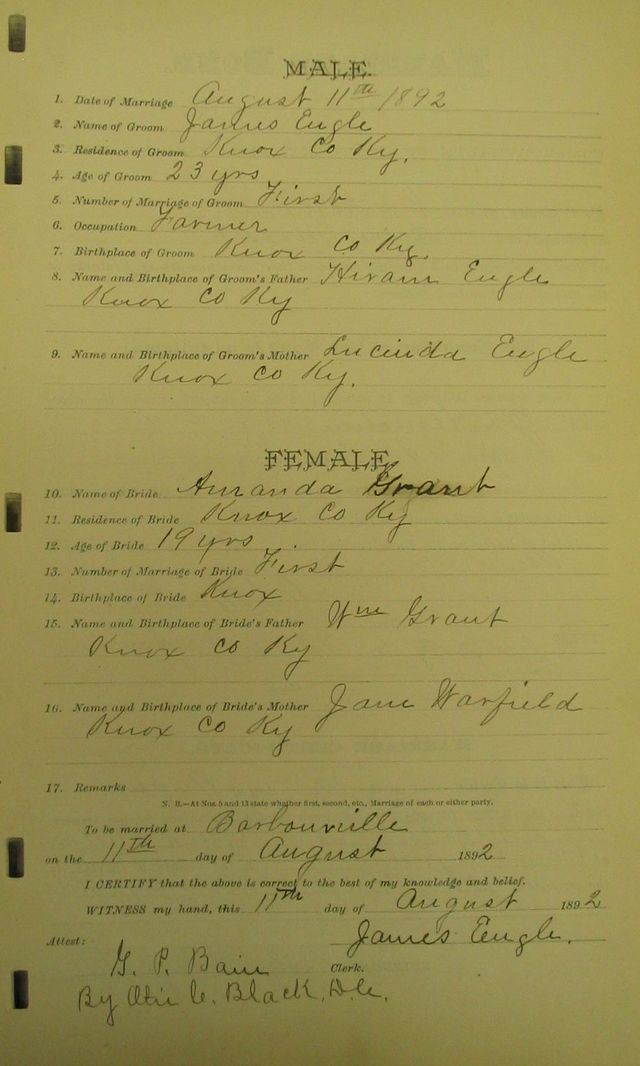 MALE.
1. Date of Marriage August 11th 1892
2. Name of Groom James Engle
3. Residence of Groom Knox Co Ky.
4. Age of Groom 23 yrs
5. Number of Marriage of Groom First
6. Occupation Farmer
7. Birthplace of Groom Knox Co Ky.
8. Name and Birthplace of Groom's Father Hiram Engle
Knox Co Ky
9. Name and Birthplace of Groom's Mother Lucinda Engle
Knox Co Ky.
FEMALE.
10. Name of Bride Amanda Grant
11. Residence of Bride Knox Co Ky
12. Age of Bride 19 yrs
13. Number of Marriage of Bride First
14. Birthplace of Bride Knox
15. Name and Birthplace of Bride's Father Wm Grant
Knox Co Ky
16. Name and Birthplace of Bride's Mother Jane Warfield
Knox Co Ky
17. Remarks
N. B.—At Nos. 5 and 13 state whether first, second, etc., Marriage of each or either party.
To be married at Barbourville
on the 11th day of August 1892
I CERTIFY that the above is correct to the best of my knowledge and belief.
WITNESS my hand, this 11th day of August 1892
James Engle.
Attest:
G. P. Bain Clerk.
By C. Black, D.C.